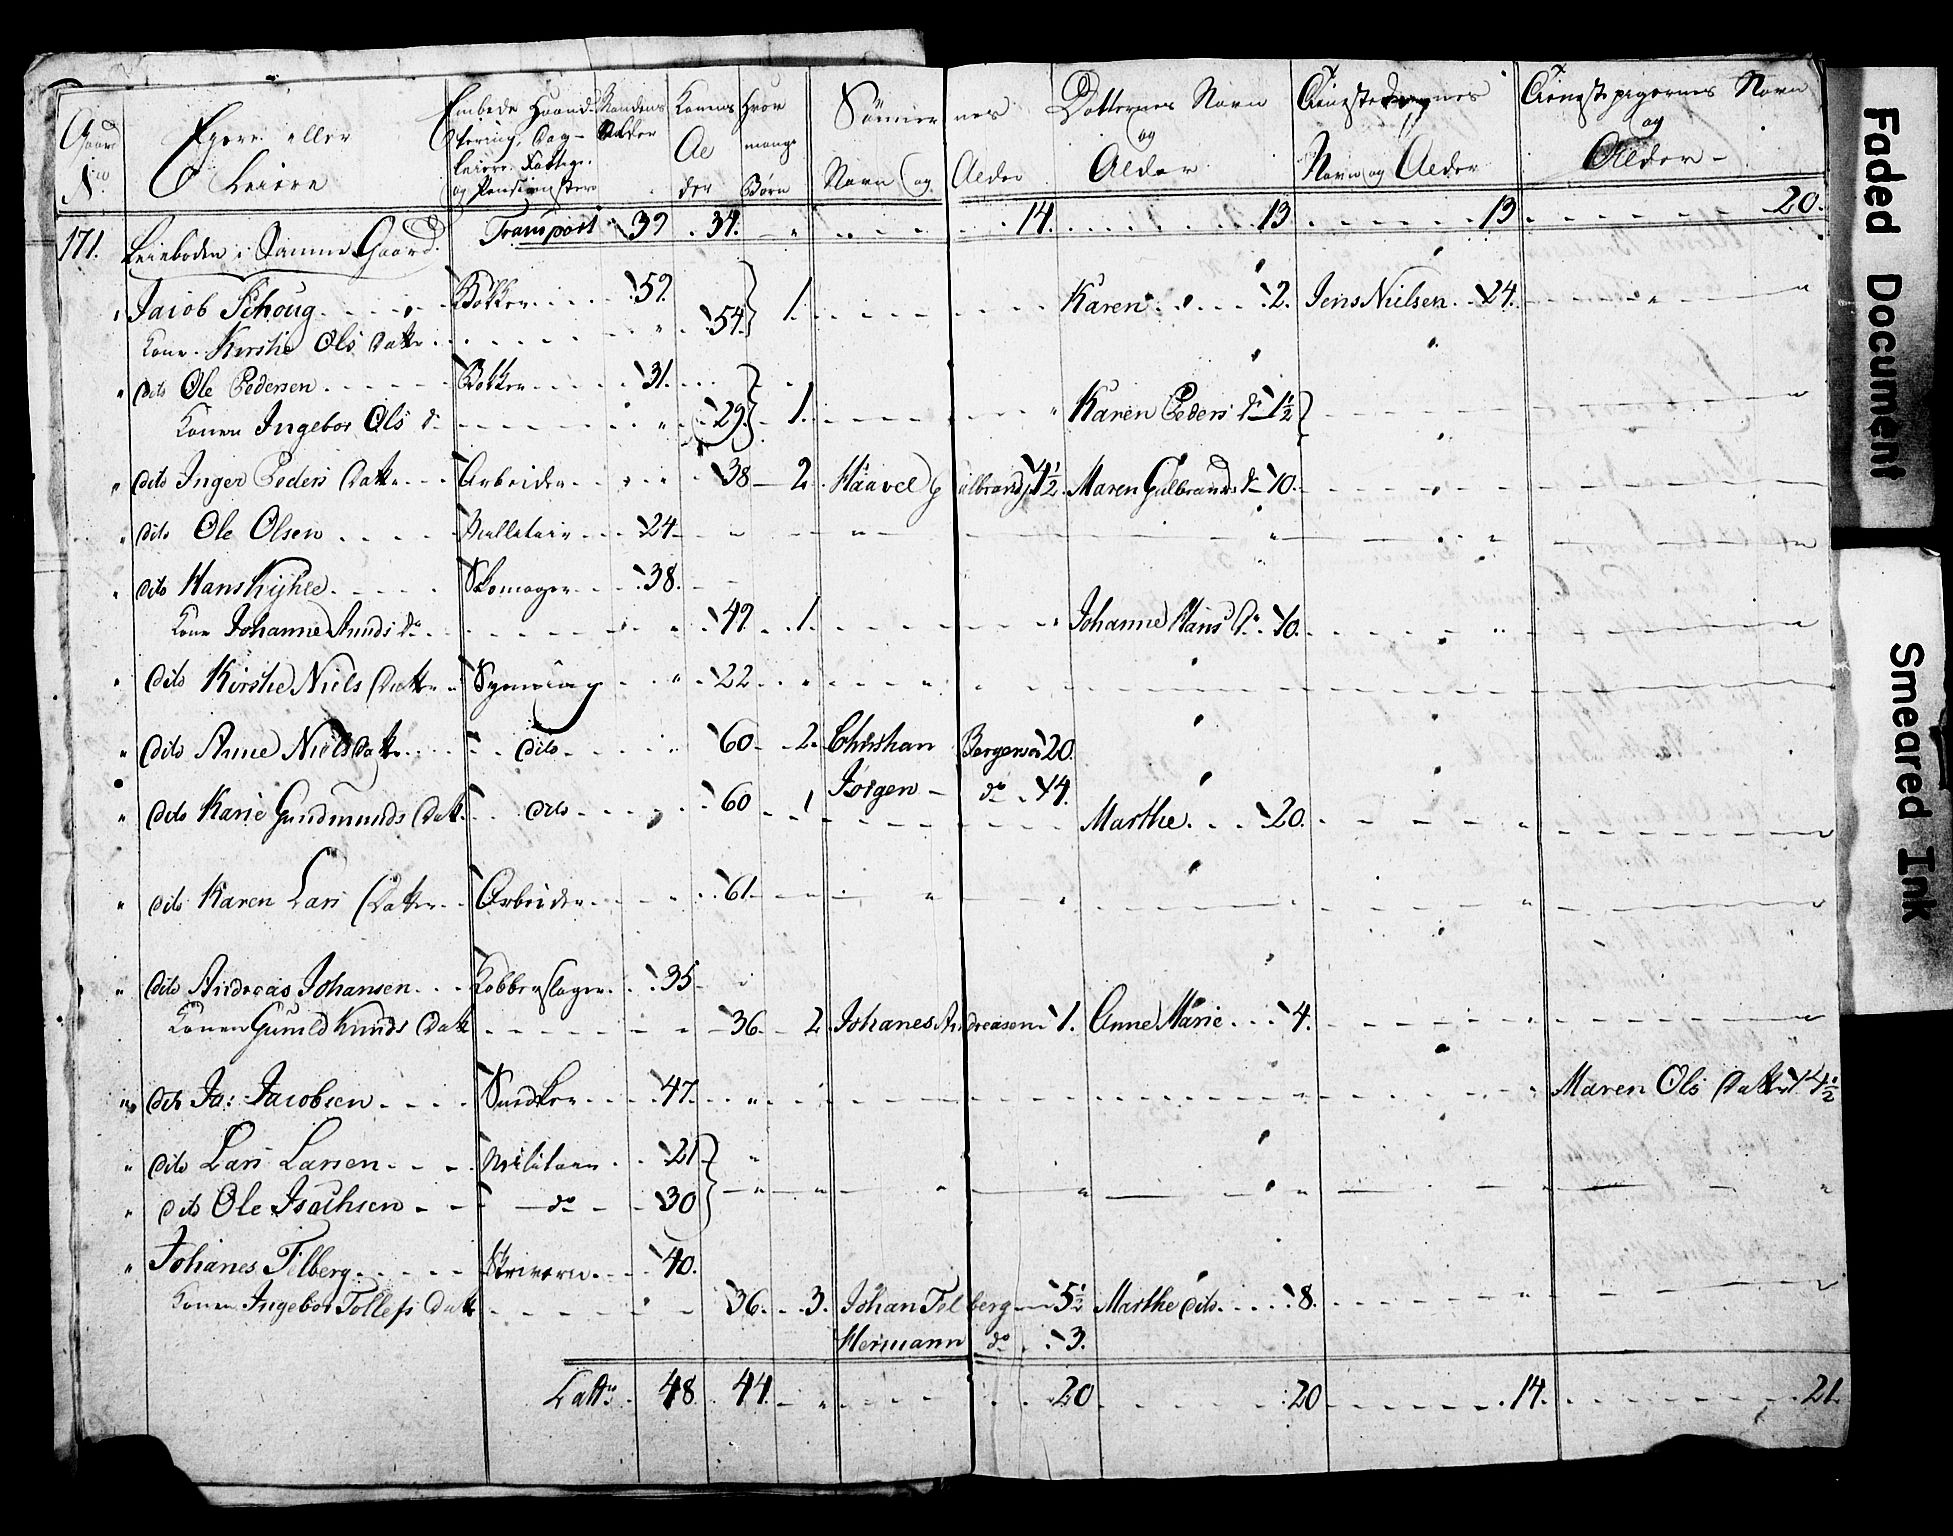 Gaard No | Eyere eller Leiere | Embede Haandtering, Dag-leiere Fattige og Pensionister | Mandens Alder | Konens Alder | Hvor mange Børn | Sønnernes Navn og Alder | Døtternes Navn og Alder | Tienstedrengenes Navn og Alder | Tienestepigernes Navn og Alder
Transport 39 34 14. 13. 13 20.
171. Leieboden i Samme Gaard
Jacob Schoug Bøkker 59. 1. Karen 2. Jens Nielsen 24.
Kone Kirstie Ols Datter 54
dito Ole Pedersen Bøkker 31.
Konen Ingebor Ols d 29. 1. Karen Peders d 1½
dito Inger Peders Datter Arbeider 38 2. Haavel Gulbrands 4½ Maren Gulbrands d 10.
dito Ole Olsen Millitair 24
dito Hans Kyhle Skomager 38.
Kone Johanne Amds d 49. 1. Johanne Hans d 10.
dito Kirstie Niels Datter Syening 22
dito Anne Niels Datter dito 60 2. Christian Borgersen 20.
Jørgen do 14.
dito Karie Gundmunds Datt dito 60 1 Marthe 20.
dito Karen Lars Datter Arbeider 61.
dito Andreas Johansen Kobberslager 35
Konen Gunild Knuds Datt 36. 2. Johanes Andreasen 1. Anne Marie 4.
dito Ja: Jacobsen Snedker 47. Maren Ols Datter 14½
dito Lars Larsen Militair 21
dito Ole Isachsen do 30
Johanes Felberg Skriver 40.
Konen Ingebor Tollefs Datt 36. 3. Johan Felberg 5½ Marthe dito 8.
Hermann do 3.
Latt 48 44. 20 20 14. 21.
Faded Document
Smeared Ink